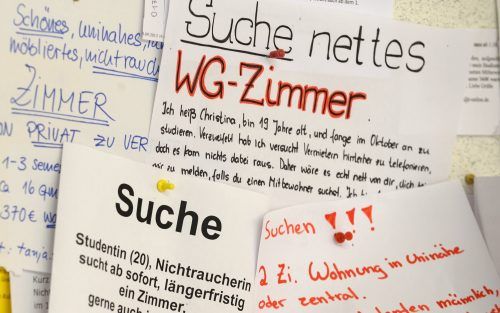 Schönes, uninahes,
möbliertes, nichtrauch
ZIMMER
PRIVAT ZU VER
1-3 seme
ca 16 qm
370€
Suche nettes
WG-Zimmer
Ich heiß Christina, bin 19 Jahre alt, und fange im Oktober an zu
studieren. Verzweifelt hab ich versucht Vermietern hinterher zu telefonieren,
doch es kam nichts dabei raus. Daher wäre es echt nett von dir, dich bei
mir zu melden, falls du einen Mitbewohner suchst.
Suche
Studentin (20), Nichtraucherin
sucht ab sofort, längerfristig
ein Zimmer.
gerne auch
Suchen !!!
2 Zi. Wohnung in Uninähe
oder zentral.
männlich,